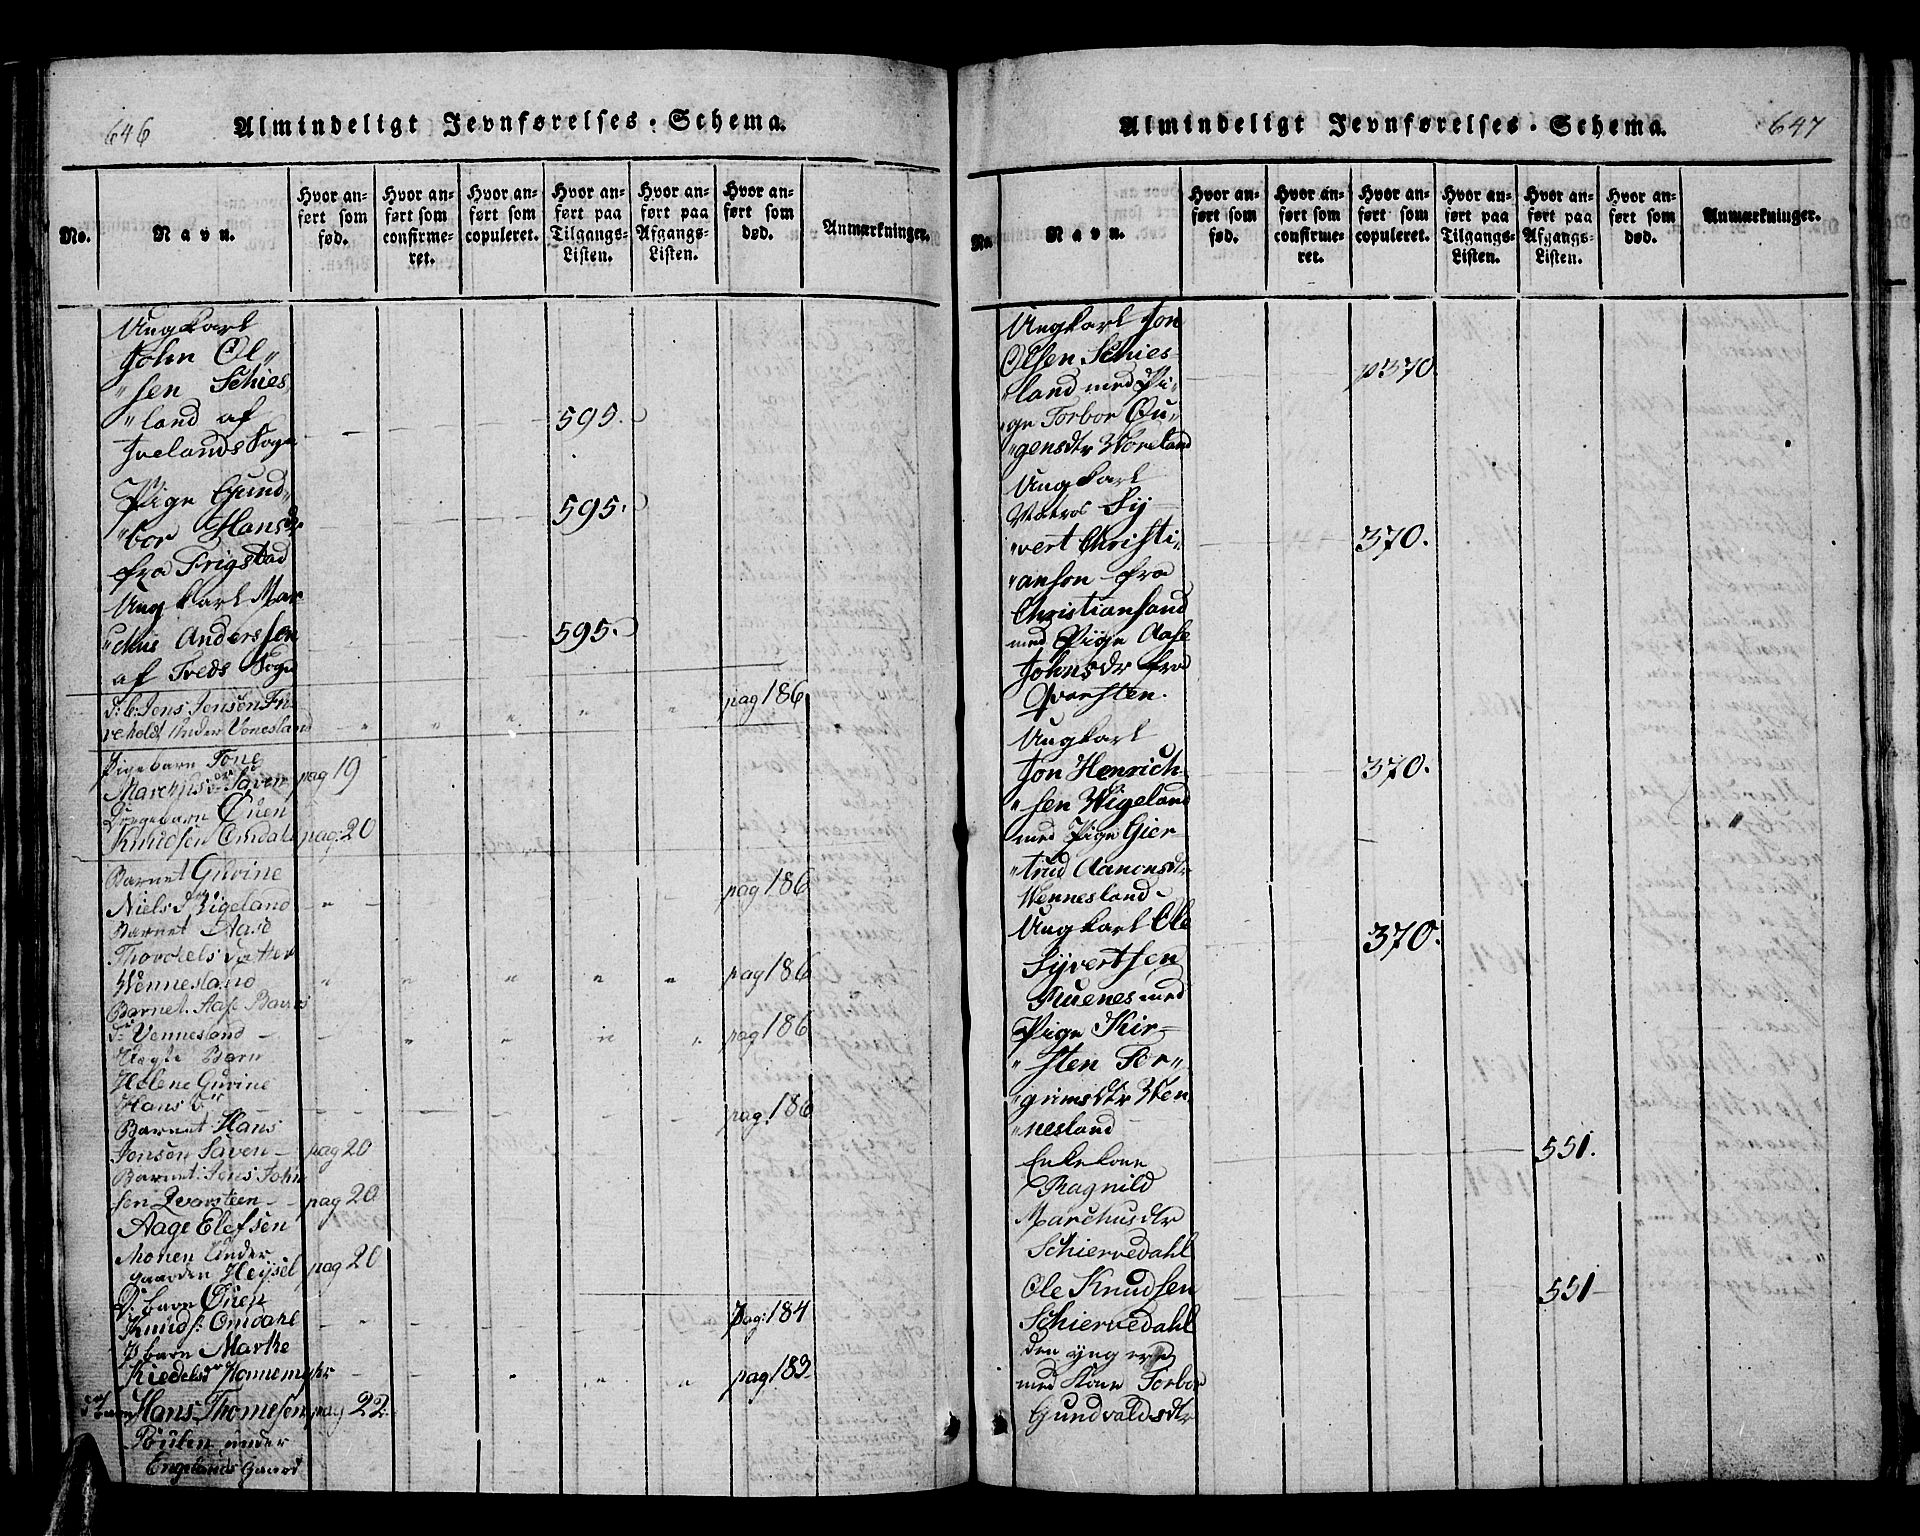 646
Almindeligt Jevnførelses-Schema.
No.
Navn.
Hvor an-
ført som
fød.
Hvor an-
ført som
confirme-
ret.
Hvor an-
ført som
copuleret.
Hvor an-
ført paa
Tilgangs-
Listen.
Hvor an-
ført paa
Afgangs-
Listen.
Hvor an-
ført som
død.
Anmærkninger.
Ungkarl
John Ol"
"sen Schies
"land af 595.
Ivelands Sogn
Pige Gund"
"bor Hansdr 595.
fra Frigstad
Ungkarl Mar
"chus Anderssen 595.
af Tveds Sogn
Jens Jensen pag 186
under Venesland
Pigebarn Tone
Marchusdr Saven pag 19
Drengebarn Ouen
Knudsen Omdals pag: 20
Barnet Guvine
Niels dr Vigeland pag 186
Barnet Aase
Thorchels datter
Wennesland pag 186
Barnet Aase
Vennesland - pag 186
Uegte Barn
Helene Guvine
Hans pag: 186
Barnet Hans
Jonsen Saven - pag 20
Barnet: Jens John
sen Qvarsteen - pag 20
Aage Elefsen
Monen under
gaarden Heysel pag 20
D: barn Ouen
Knuds: Omdahl Pag: 184
P barn Marthe
Kiedelsdr Honnemyhr pag 183
Hans Thomesen pag 22
under
Engelands Gaard
647
Almindeligt Jevnførelses-Schema.
No.
Navn.
Hvor an-
ført som
fød.
Hvor an-
ført som
confirme-
ret.
Hvor an-
ført som
copuleret.
Hvor an-
ført paa
Tilgangs-
Listen.
Hvor an-
ført paa
Afgangs-
Listen.
Hvor an-
ført som
død.
Anmærkninger.
Ungkarl Jon
Olsen Schies-
"land med Pi- p 370.
"ge Torbor Ou-
"gensdtr Woreland
Ungkarl
Matros Sy-
"vert Christi- 370.
"ansen fra
Christiansand
med Pige Aase
Johnsdr fra
Qvarsten.
Ungkarl
Jon Henrich- 370.
"sen Wigeland
med Pige Gier-
"trud Aanonsdtr
Wennesland
Ungkarl Ole 370.
Syvertsen
Ruenes med
Pige Kir-
"sten Ter"
"gimsdtr Wen
"nesland
Enkekone 551.
Ragnild
Marchusdtr
Schiervedahl
Ole Knudsen 551
Schiervedahl
den yngere
med Kone Torbor
Gundvaldsdtr